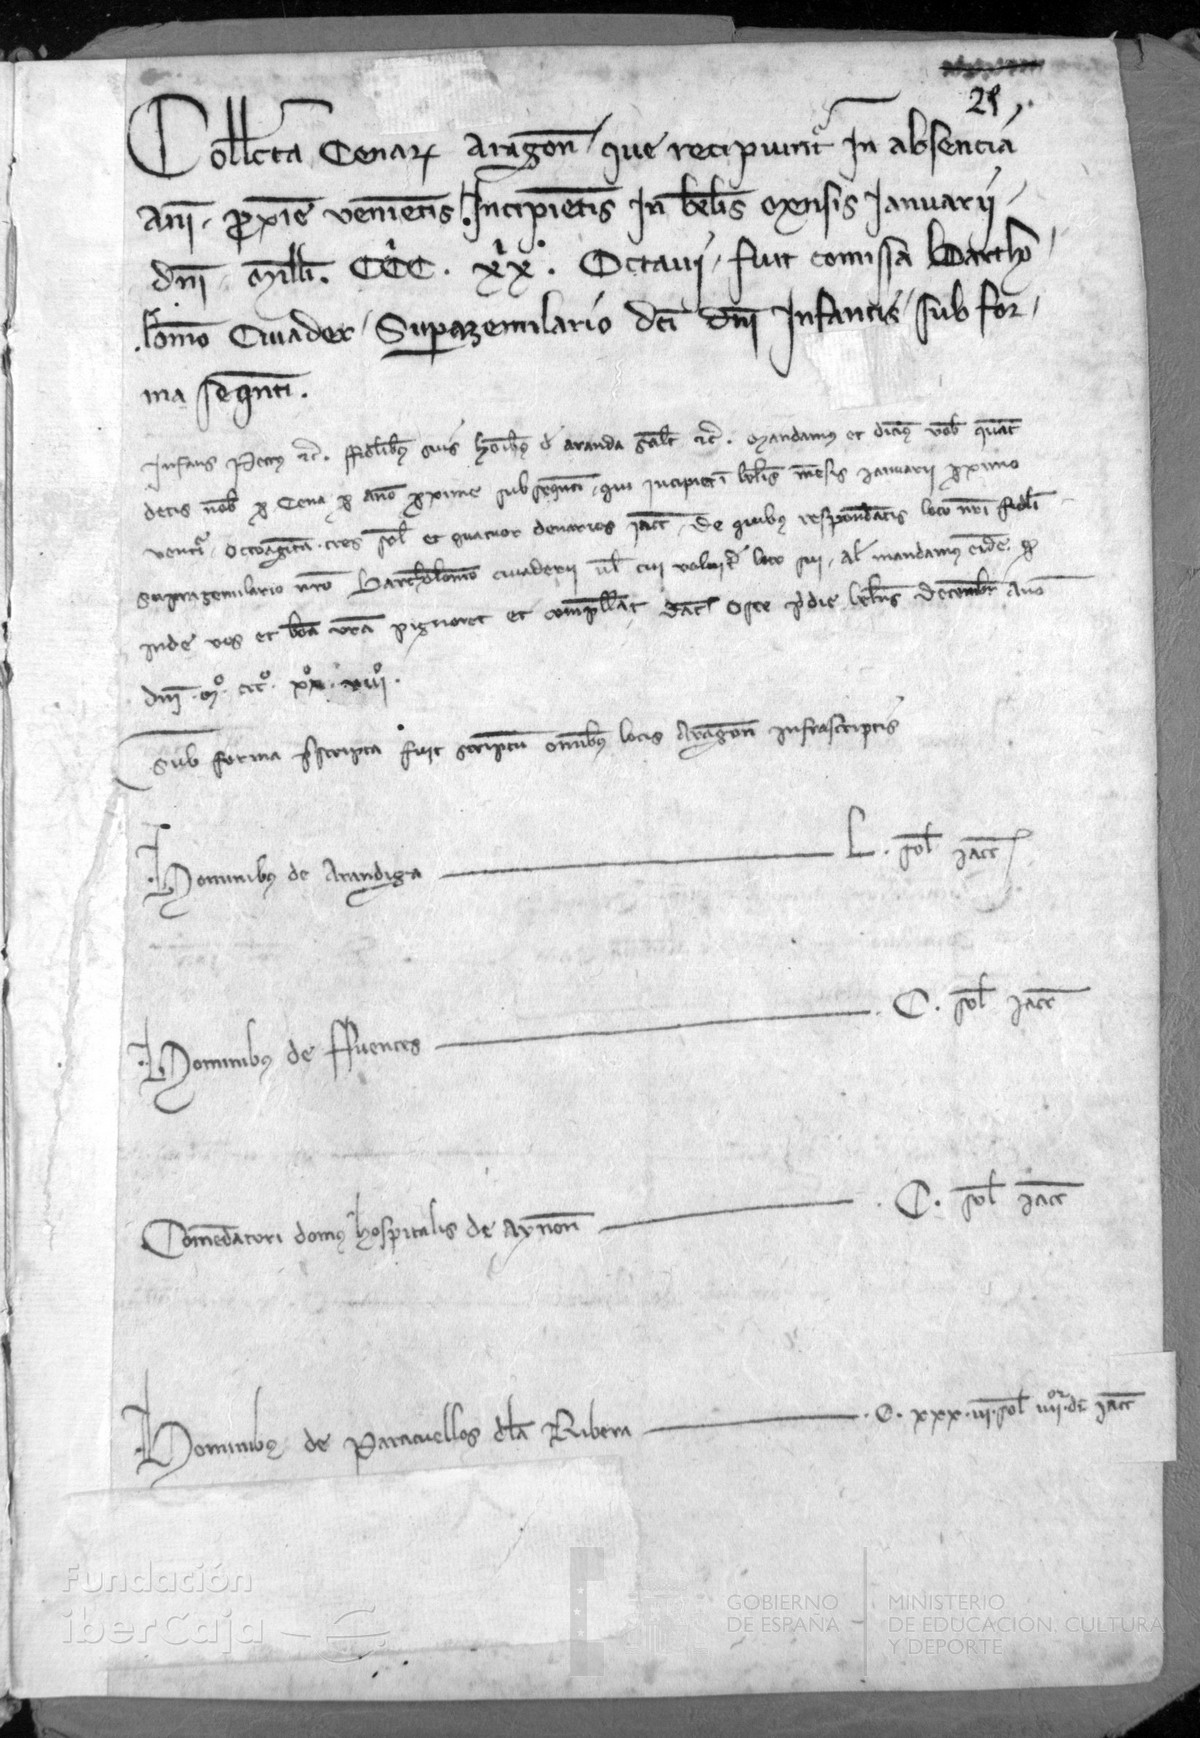 21
Collecta Cenarum Aragon que recipiuntur In absencia
Anni proxime venientis Incipientis In kalendis mensis Januarii
dni Mill. CCC. XX. Octavi fuit comissa Bartho
lomeo Civader Supraazemilario dcti dni Infantis sub for
ma sequnti.
Infans Petrus etc. ffidelibus suis hominibus de aranda salutem etc. mandamus et dicimus vobis quatenus
detis nobis pro Cena pro anno proxime subsequenti qui incipiet in kalendis mensis januarii proximo
venturi Octoaginta tres sol et quatuor denarios jacc. De quibus respondeatis loco nostri fideli
supraazemilario nostro Bartholomeo civaderii vel cui voluerit loco sui. Al mandamus eidem quod
inde vos et bona vestra pignoret et compellat Dat Osce pridie kalendas Decembris Anno
dni Mo. CCCo. XXo. viiio.
Sub forma prescripta fuit scriptum omnibus locis Aragon infrascriptis
Hominibus de Arandiga L. sol jacc
Hominibus de ffuentes C. sol jacc
Comendatori domus hospitalis de Aynnon C. sol jacc
Hominibus de Paracuellos dela Ribera C. xxx. iii. sol iiiior. dr jacc
Fundación
iberCaja
GOBIERNO
DE ESPAÑA
MINISTERIO
DE EDUCACION, CULTURA
Y DEPORTE